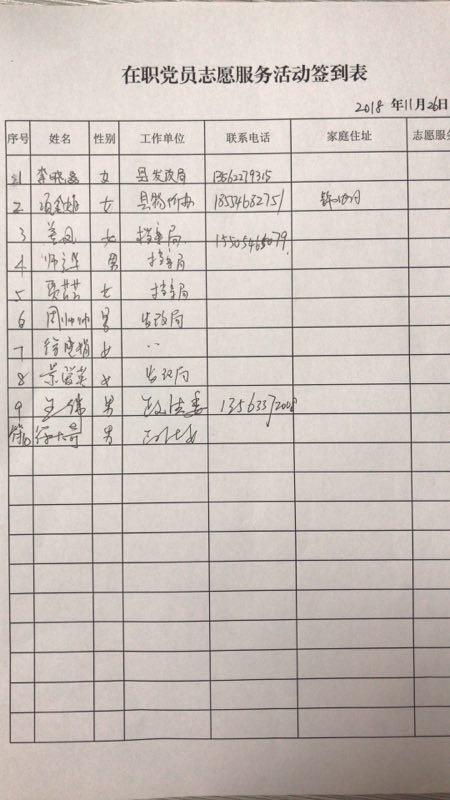 在职党员志愿服务活动签到表
2018 年11月26日
序号 姓名 性别 工作单位 联系电话 家庭住址 志愿服务
1 李晓 女 县发改局 13562279315
2 女 县物价办 18554682751
3 姜凤 女 档案局 15505465079
4 师立华 男 档案局
5 贾茜茜 女 档案局
6 周帅帅 男 发改局
7 徐晓娟 女 ··
8 景爱英 女 发改局
9 王伟 男 政法委 13563372008
10 男 政法委